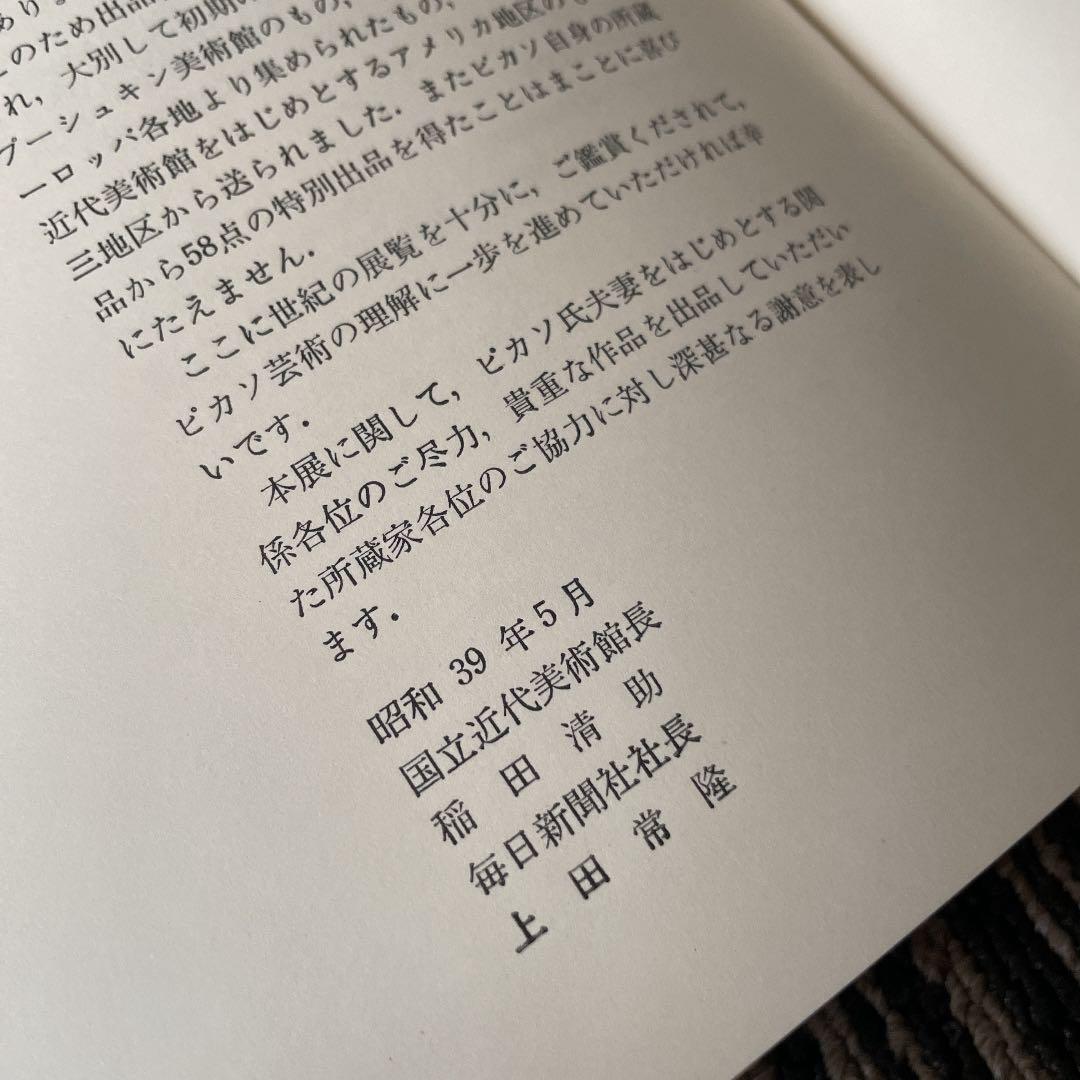 のため出品
れ，大別して初期の
プーシュキン美術館のもの，
ーロッパ各地より集められたもの，
近代美術館をはじめとするアメリカ地区の
三地区から送られました．またピカソ自身の所蔵
品から58点の特別出品を得たことはまことに喜び
にたえません．
ここに世紀の展覧を十分に，ご鑑賞くだされて，
ピカソ芸術の理解に一歩を進めていただければ幸
いです．
本展に関して，ピカソ氏夫妻をはじめとする関
係各位のご尽力，貴重な作品を出品していただい
た所蔵家各位のご協力に対し深甚なる謝意を表し
ます．
昭和 39 年 5 月
国立近代美術館長
稲田清助
毎日新聞社社長
上田常隆